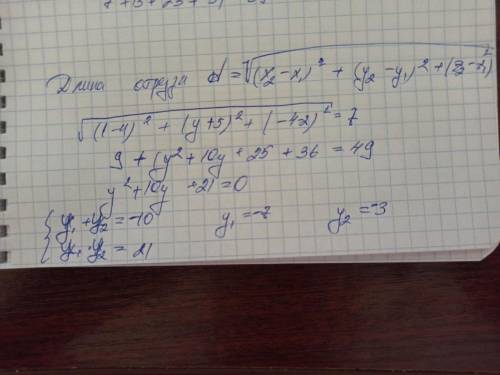 Длина отрузка d = √(x₂-x₁)² + (y₂-y₁)² + (z₂-z₁)²
√(1-4)² + (y+5)² + (-42)² = 7
9 + (y² + 10y + 25 + 36 = 49
y² + 10y + 21 = 0
{ y₁ + y₂ = -10 y₁ = -7 y₂ = -3
{ y₁ · y₂ = 21